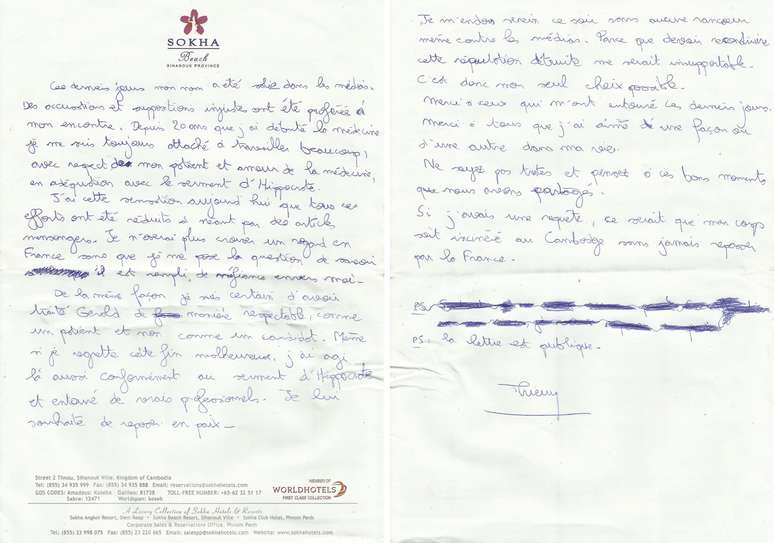 SOKHA
Beach
SIHANOUK PROVINCE
Ces derniers jours mon nom a été salie dans les médias.
Des accusations et suppositions injustes ont été proférée à
mon encontre. Depuis 20 ans que j'ai débuté la médecine
je me suis toujours attaché à travailler beaucoup,
avec respect de mon patient et amour de la médecine,
en adéquation avec le serment d'Hippocrate.
J'ai cette sensation aujourd'hui que tous ces
efforts ont été réduits à néant par des articles
mensongers. Je n'oserai plus croiser un regard en
France sans que je me pose la question de savoir
s'il est rempli de méfiance envers moi.
De la même façon je suis certain d'avoir
traité Gerald de manière respectable, comme
un patient et non comme un candidat. Même
si je regrette cette fin malheureuse, j'ai agi
là aussi conformément au serment d'Hippocrate
et entouré de vrais professionnels. Je lui
souhaite de reposer en paix_
Street 2 Thnou, Sihanouk Ville, Kingdom of Cambodia
Tel: (855) 34 935 999 Fax: (855) 34 935 888 Email: reservations@sokhahotels.com
GDS CODES: Amadeus: Kosska Galileo: 81738 TOLL-FREE NUMBER: +65-62 32 51 17
Sabre: 12471 Worldspan: kossk
MEMBER OF
WORLDHOTELS
FIRST CLASS COLLECTION
A Luxury Collection of Sokha Hotels & Resorts
Sokha Angkor Resort, Siem Reap • Sokha Beach Resort, Sihanouk Ville • Sokha Club Hotel, Phnom Penh
Corporate Sales & Reservations Office, Phnom Penh
Tel: (855) 23 998 075 Fax: (855) 23 220 665 Email: salespp@sokhahotels.com Website: www.sokhahotels.com
Je m'endors serein ce soir sans aucune rancoeur
même contre les médias. Parce que devoir reconstruire
cette réputation détruite me serait insupportable.
C'est donc mon seul choix possible.
Merci à ceux qui m'ont entouré ces derniers jours.
Merci à tous que j'ai aimé d'une façon ou
d'une autre dans ma vie.
Ne soyez pas tristes et pensez à ces bons moments
que nous avons partagés.
Si j'avais une requête, ce serait que mon corps
soit incinéré au Cambodge sans jamais repasser
par la France.
PS:
PS: la lettre est publique.
Thierry